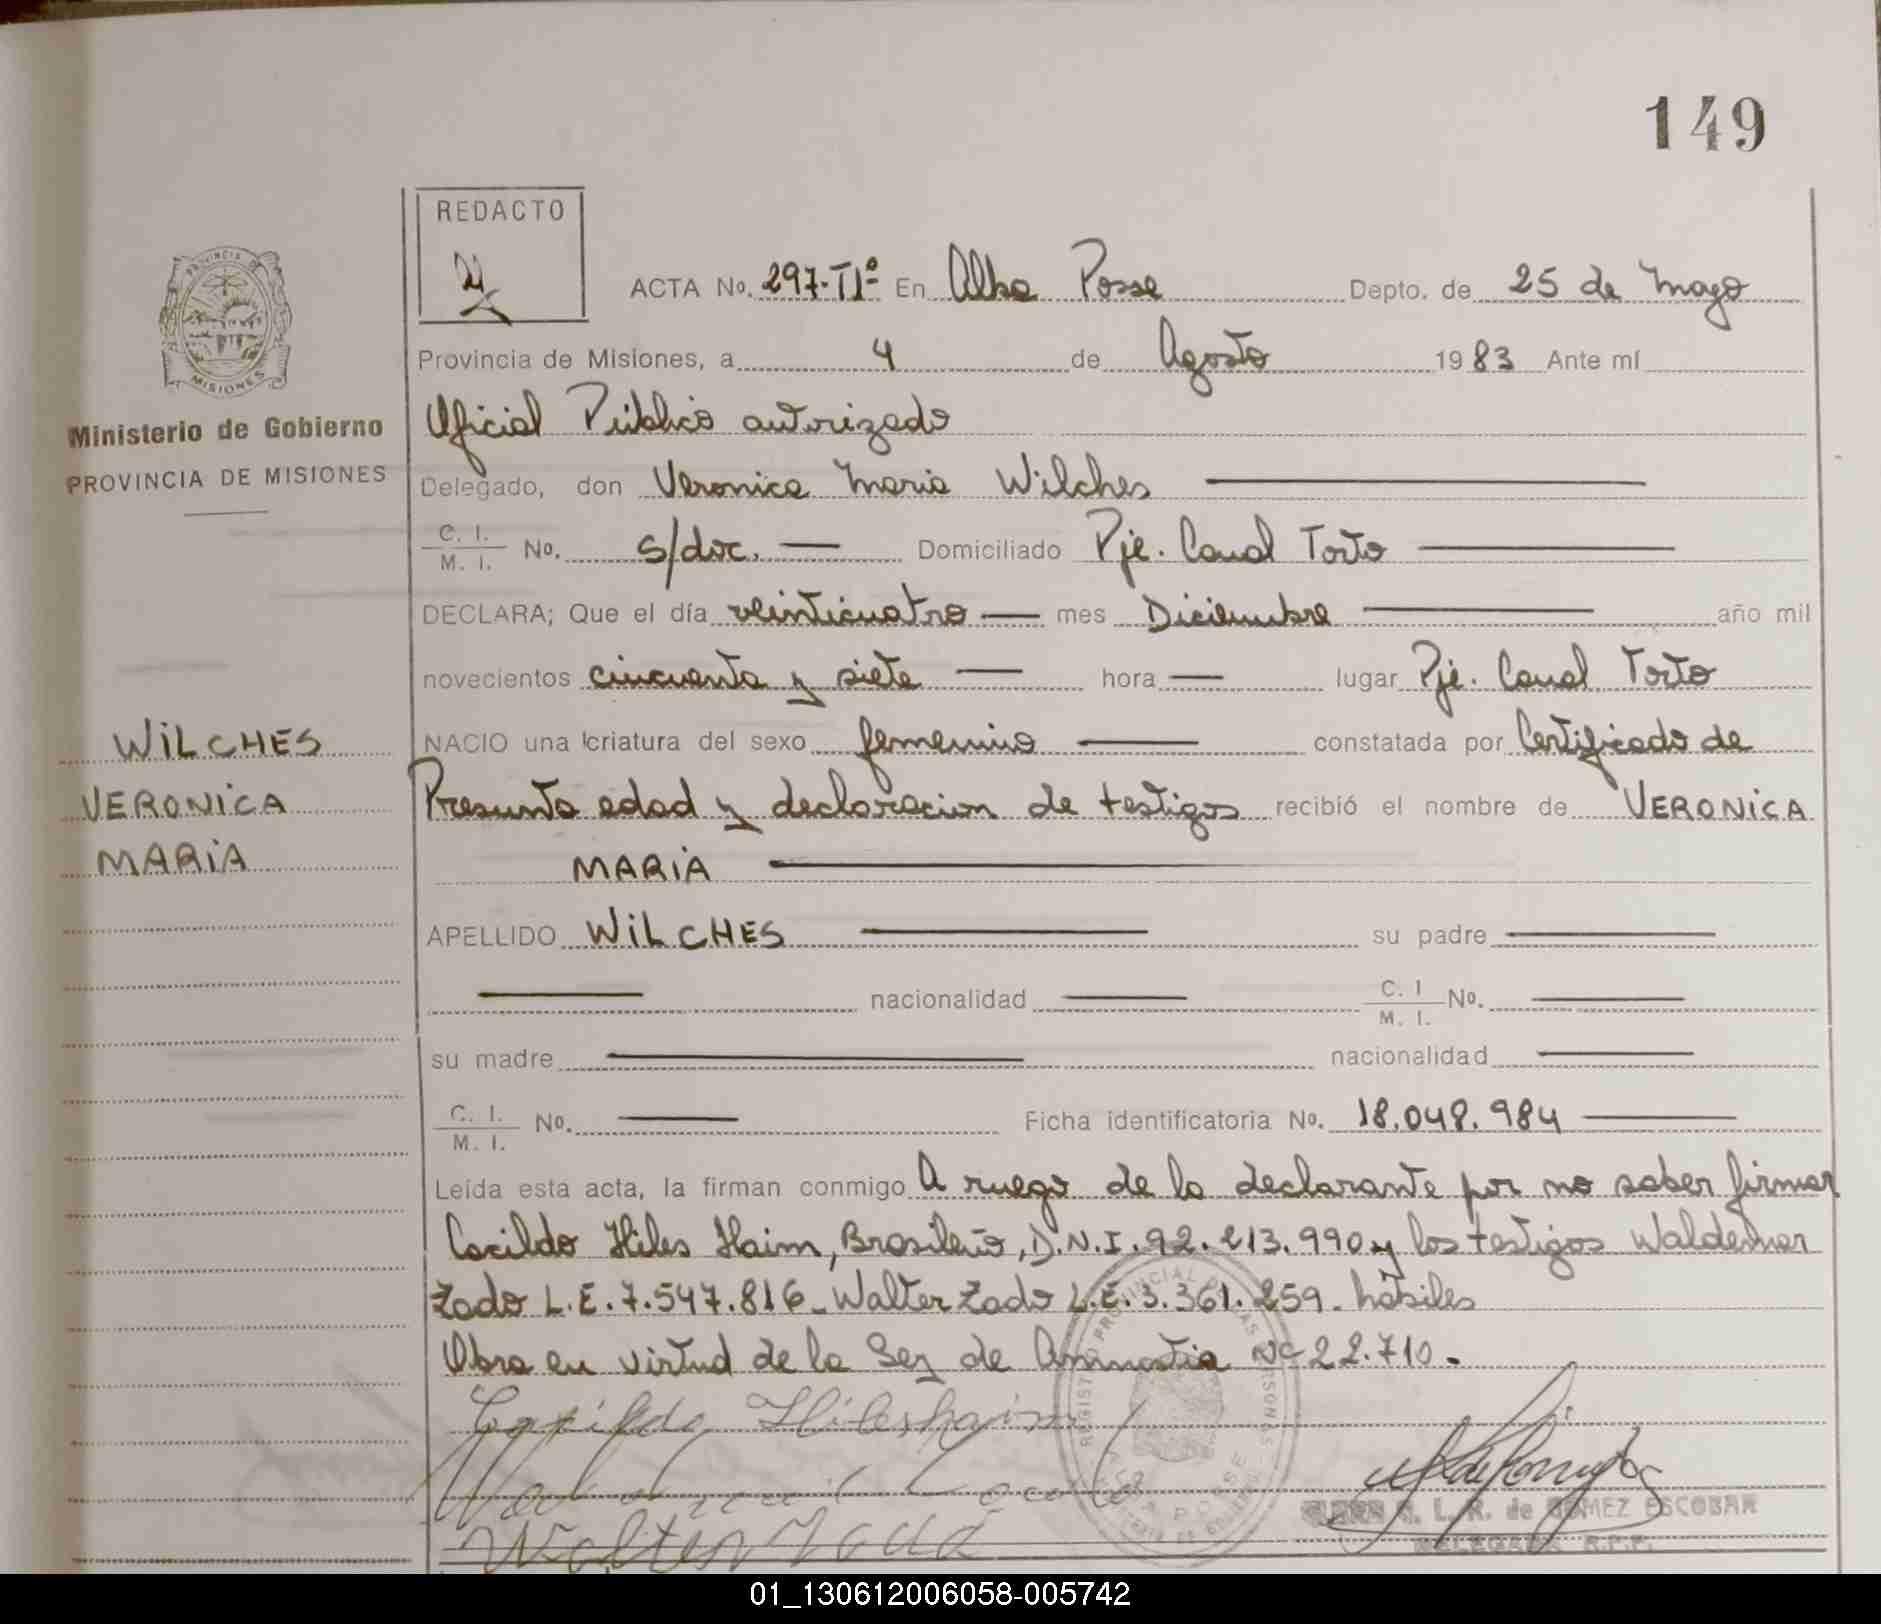 149
REDACTO
ACTA No. 297-Tº1º En Alba Posse Depto. de 25 de Mayo
Provincia de Misiones, a 4 de Agosto 1983 Ante mí
Oficial Público autorizado
Delegado, don Veronica Maria Wilches
C. I. / M. I. No. s/doc. Domiciliado Pje. Canal Torto
DECLARA; Que el día veinticuatro mes Diciembre año mil
novecientos cincuenta y siete hora lugar Pje. Canal Torto
NACIO una criatura del sexo femenino constatada por Certificado de
Presunta edad y declaracion de testigos recibió el nombre de VERONICA
MARIA
APELLIDO WILCHES su padre
nacionalidad C. I / M. I. No.
su madre nacionalidad
C. I. / M. I. No. Ficha identificatoria No. 18.048.984
Leída esta acta, la firman conmigo A ruego de la declarante por no saber firmar
Cacildo Hiles Haim, Brasileño, D.N.I. 92.213.990 y los testigos Waldemar
Zado L.E. 7.547.816 - Walter Zado L.E. 3.361.259 - hábiles
Obra en virtud de la Ley de Amnistia Nº 22.710.
PROVINCIA DE
MISIONES
Ministerio de Gobierno
PROVINCIA DE MISIONES
WILCHES
VERONICA
MARIA
Hileshaim
Walter
REGISTRO PROVINCIAL DE LAS PERSONAS
POSSE
L. R. de GOMEZ ESCOBAR
DELEGADA R.P.P.
01_130612006058-005742